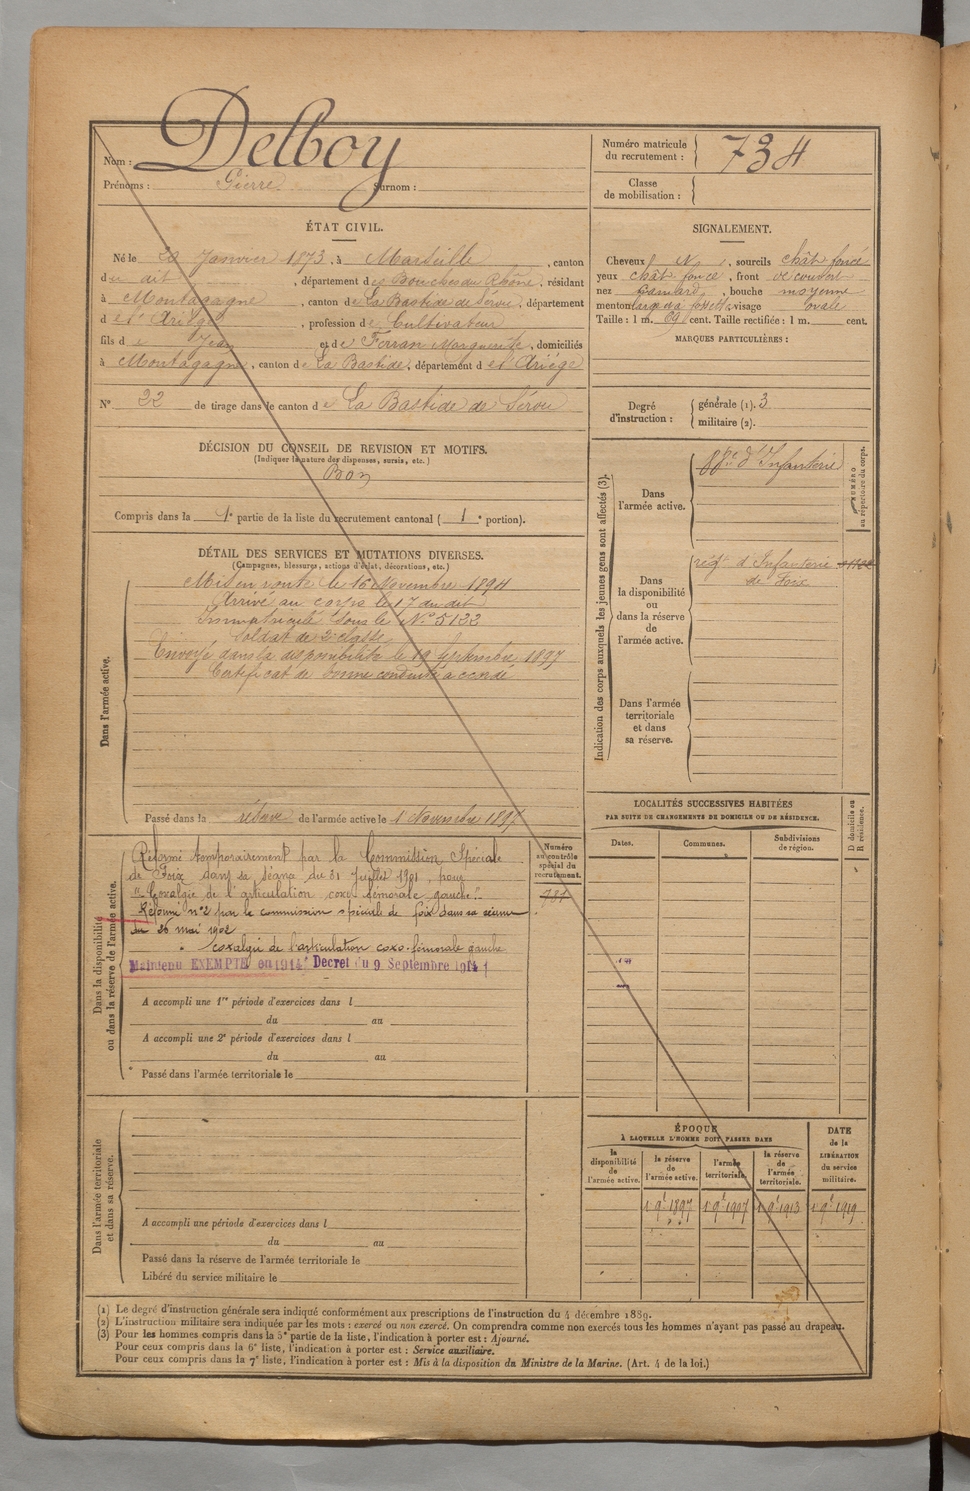 Nom : Delboy
Prénoms : Pierre Surnom :
Numéro matricule du recrutement : 734
Classe de mobilisation :
ÉTAT CIVIL.
Né le Janvier 1873, à Marseille, canton
du dit, département des Bouches du Rhône, résidant
à Montagagne, canton de La Bastide de Sérou, département
d et Ariège, profession de Cultivateur
fils de Jean et de Ferran Marguerite, domiciliés
à Montagagne, canton de La Bastide, département d et Ariége
N° 22 de tirage dans le canton de La Bastide de Sérou
SIGNALEMENT.
Cheveux N, sourcils chât foncé
yeux chât foncé, front découvert
nez, bouche moyenne
menton large à fossette, visage ovale
Taille : 1 m. 69 cent. Taille rectifiée : 1 m. cent.
MARQUES PARTICULIÈRES :
Degré d'instruction : générale (1). 3
militaire (2).
DÉCISION DU CONSEIL DE REVISION ET MOTIFS.
(Indiquer la nature des dispenses, sursis, etc.)
Bon
Compris dans la 1e partie de la liste du recrutement cantonal ( 1e portion).
DÉTAIL DES SERVICES ET MUTATIONS DIVERSES.
(Campagnes, blessures, actions d'éclat, décorations, etc.)
Dans l'armée active.
Mis en route le 16 Novembre 1894
Arrivé au corps le 17 du dit
Immatriculé sous le N° 5122
Soldat de 2e classe
Envoyé dans la disponibilité le 19 Septembre 1897
Certificat de bonne conduite accordé
Passé dans la réserve de l'armée active le 1 Novembre 1897
Indication des corps auxquels les jeunes gens sont affectés (3).
Dans l'armée active.
d'Infanterie
NUMÉRO au répertoire du corps.
Dans la disponibilité ou dans la réserve de l'armée active.
régt d'Infanterie
de Foix
Dans l'armée territoriale et dans sa réserve.
LOCALITÉS SUCCESSIVES HABITÉES
PAR SUITE DE CHANGEMENTS DE DOMICILE OU DE RÉSIDENCE.
Dates. Communes. Subdivisions de région. D domicile ou R résidence.
Dans la disponibilité ou dans la réserve de l'armée active.
Numéro au contrôle spécial du recrutement.
781
Réformé temporairement par la Commission Spéciale
de Foix dans sa séance du 31 Juillet 1901, pour
"Coxalgie de l'articulation coxo fémorale gauche"
Réformé n°2 par la commission spéciale de foix dans sa séance
du 26 mai 1902
coxalgie de l'articulation coxo-fémorale gauche
Maintenu EXEMPTÉ en 1914 Décret du 9 Septembre 1914
A accompli une 1re période d'exercices dans l
du au
A accompli une 2e période d'exercices dans l
du au
Passé dans l'armée territoriale le
Dans l'armée territoriale et dans sa réserve.
A accompli une période d'exercices dans l
du au
Passé dans la réserve de l'armée territoriale le
Libéré du service militaire le
ÉPOQUE
À LAQUELLE L'HOMME DOIT PASSER DANS
la disponibilité de l'armée active. la réserve de l'armée active. l'armée territoriale. la réserve de l'armée territoriale.
DATE de la LIBÉRATION du service militaire.
1 9e 1897 1 9e 1907 1 9e 1913 1 9e 1919
(1) Le degré d'instruction générale sera indiqué conformément aux prescriptions de l'instruction du 4 décembre 1889.
(2) L'instruction militaire sera indiquée par les mots : exercé ou non exercé. On comprendra comme non exercés tous les hommes n'ayant pas passé au drapeau.
(3) Pour les hommes compris dans la 5e partie de la liste, l'indication à porter est : Ajourné.
Pour ceux compris dans la 6e liste, l'indication à porter est : Service auxiliaire.
Pour ceux compris dans la 7e liste, l'indication à porter est : Mis à la disposition du Ministre de la Marine. (Art. 4 de la loi.)